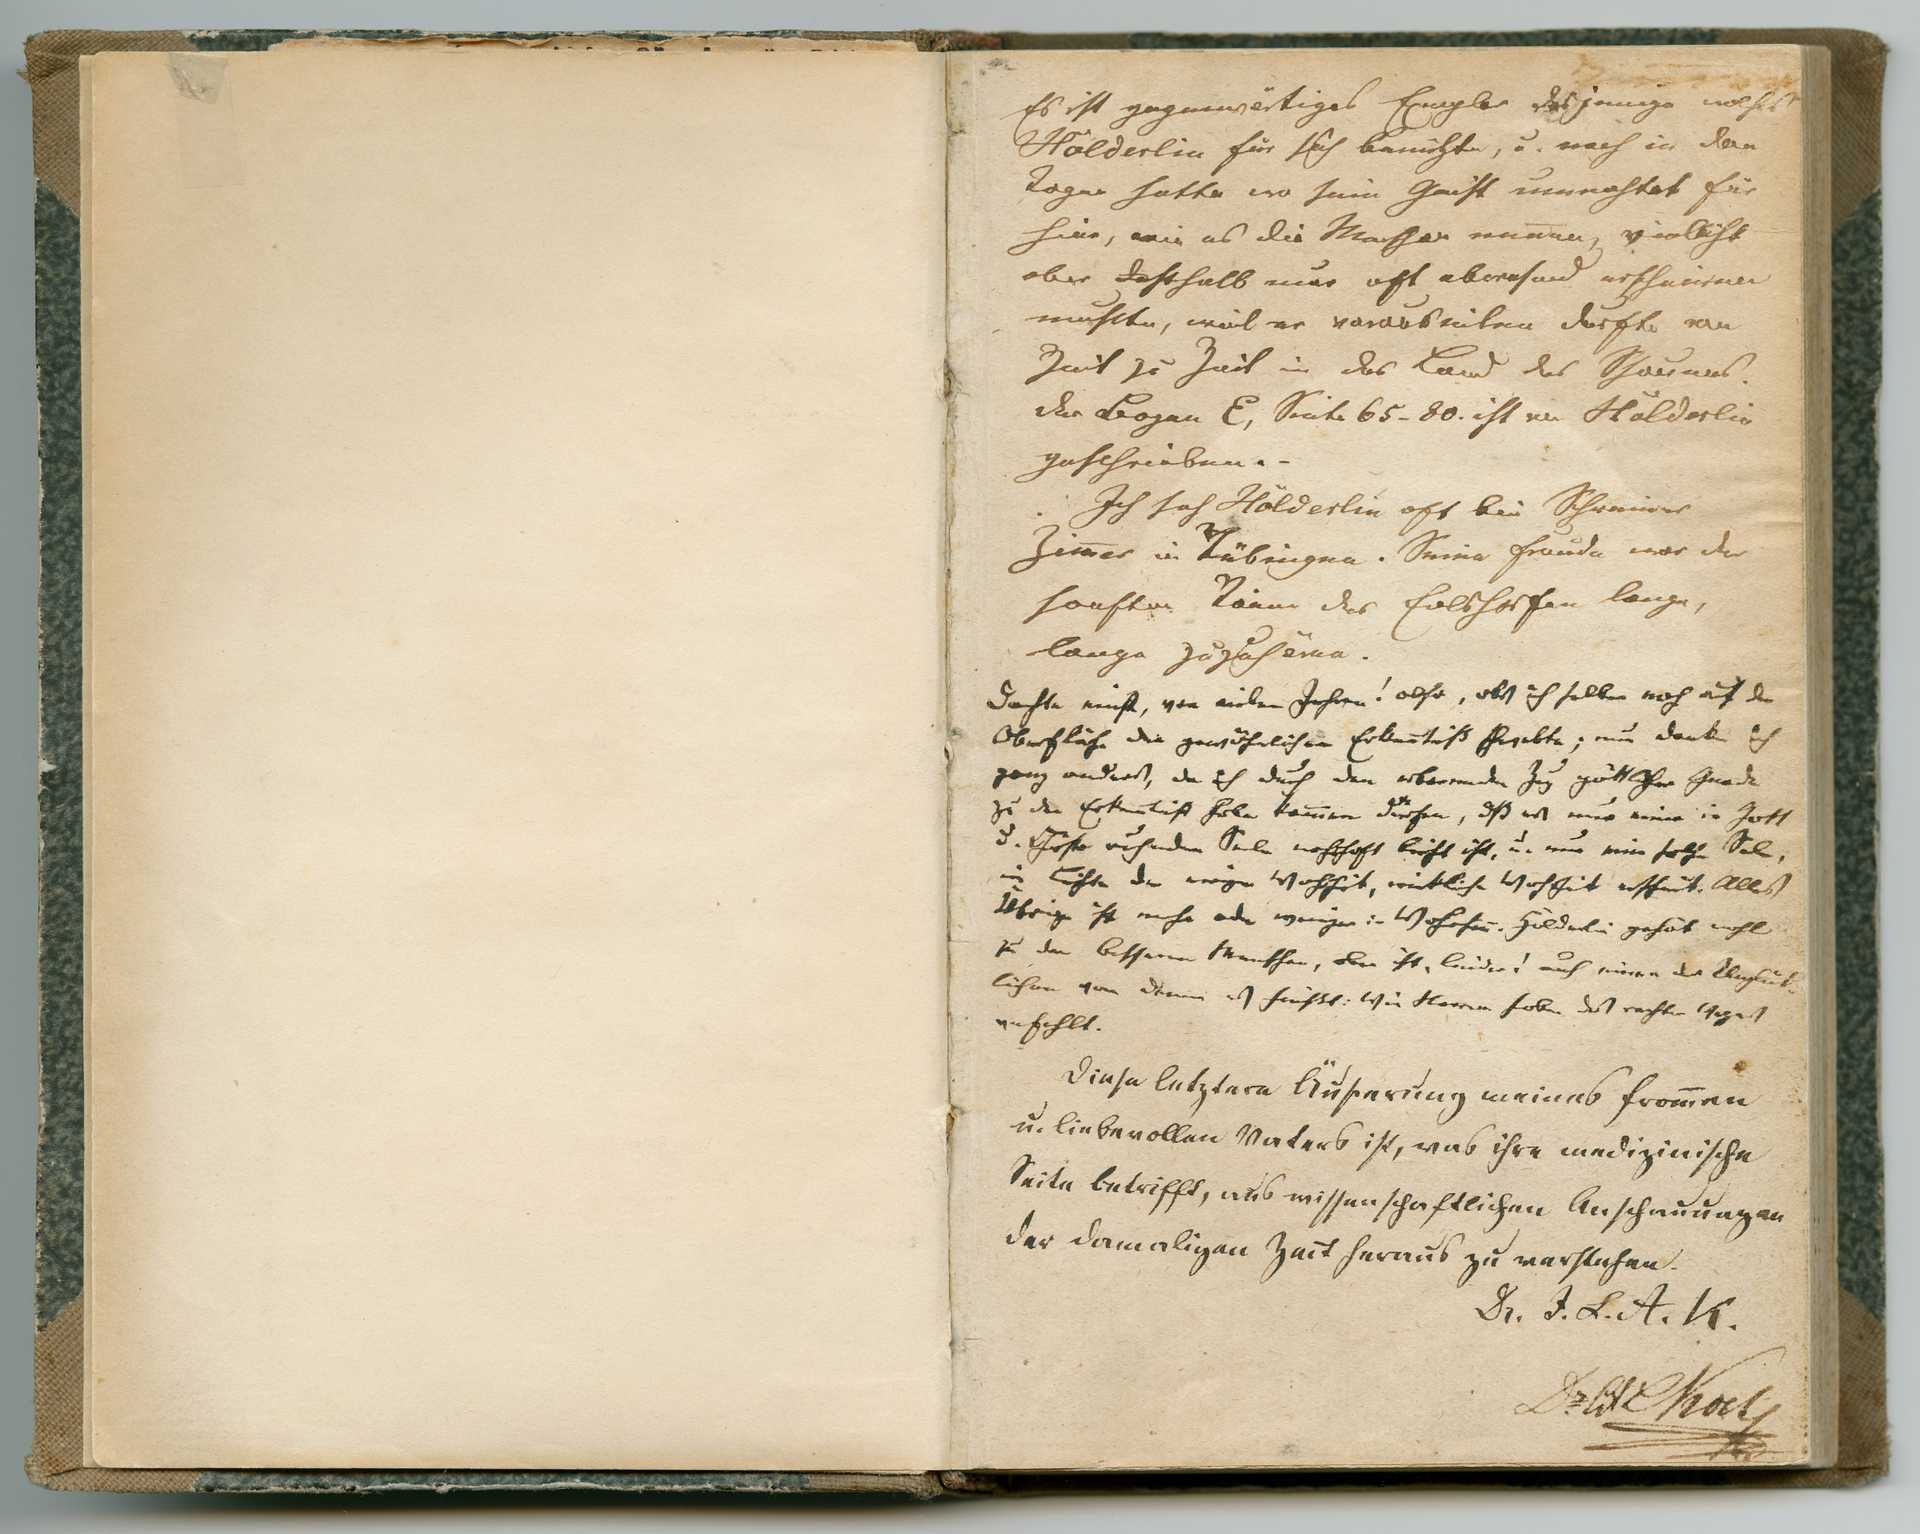 Es ist gegenwärtiges Exemplar dasjenige welches
Hölderlin für sich benützte, u. noch in den
Tagen hatte wo sein Geist umnachtet für
hier, wie es die Menschen nennen, vielleicht
aber desshalb nur oft abwesend erscheinen
musste, weil er vorauseilen durfte von
Zeit zu Zeit in das Land des Schauens.
der Bogen E, Seite 65-80. ist von Hölderlin
geschrieben. -
Ich sah Hölderlin oft bei Schreiner
Zim̅er in Tübingen. Seine Freude war den
sanften Tönen der Eolsharfen lange,
lange zuzuhören.
Dachte einst, vor vielen Jahren! also, als ich selber noch auf der
Oberfläche der gewöhnlichen Erken̅tniß schwebte; nun denke ich
ganz anders, da ich durch den erbarmenden Zug göttlicher Gnade
zu der Erken̅tniß habe kom̅en dürfen, dß es nur einer in Gott
u. Christo ruhenden Seele wahrhaft licht ist, u. nur eine solche Seele,
im Lichte der ewigen Wahrheit, wirkliche Wahrheit erschaut. Alles
Übrige ist mehr oder weniger in Wahnsin̅. Hölderlin gehört wohl
zu den besseren Menschen, aber ist, leider! auch einer der Unglück-
lichen von denen es heißt: Wir Narren haben des rechten Weges
verfehlt.
Diese letztere Äußerung meines from̅en
u. liebevollen Vaters ist, was ihre medizinische
Seite betrifft, aus wissenschaftlichen Anschauungen
der damaligen Zeit heraus zu verstehen.
Dr. J. L. A. K.
Koch